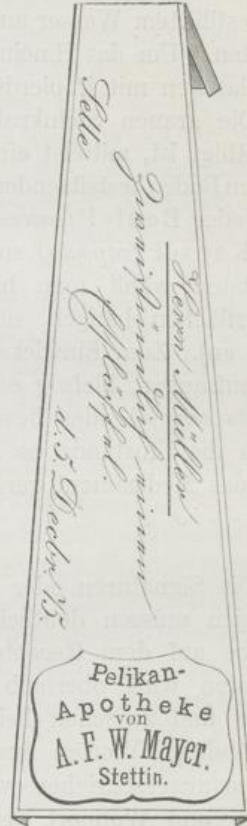 Herrn Müller
Zweistündlich einen
Eßlöffel
Selle d. 5 Decbr. 75.
Pelikan-
Apotheke
von
A. F. W. Mayer.
Stettin.